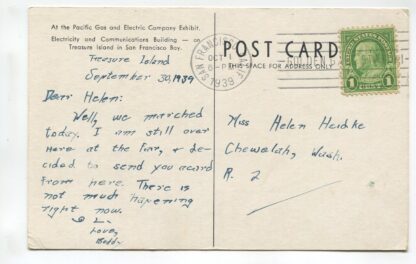 At the Pacific Gas and Electric Company Exhibit.
Electricity and Communications Building —
Treasure Island in San Francisco Bay.
Treasure Island
September 30, 1939
Dear Helen:
Well, we marched
today. I am still over
here at the fair, & de-
cided to send you a card
from here. There is
not much happening
right now.
Love,
POST CARD
THIS SPACE FOR ADDRESS ONLY
SAN FRANCISCO, CALIF.
OCT
1939
1 1
Miss Helen
Chewelah, Wash.
R. 2